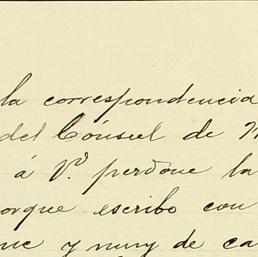 la correspondencia
del Cónsul de
á V.^d perdone la
orque escribo con
ue y muy de ca